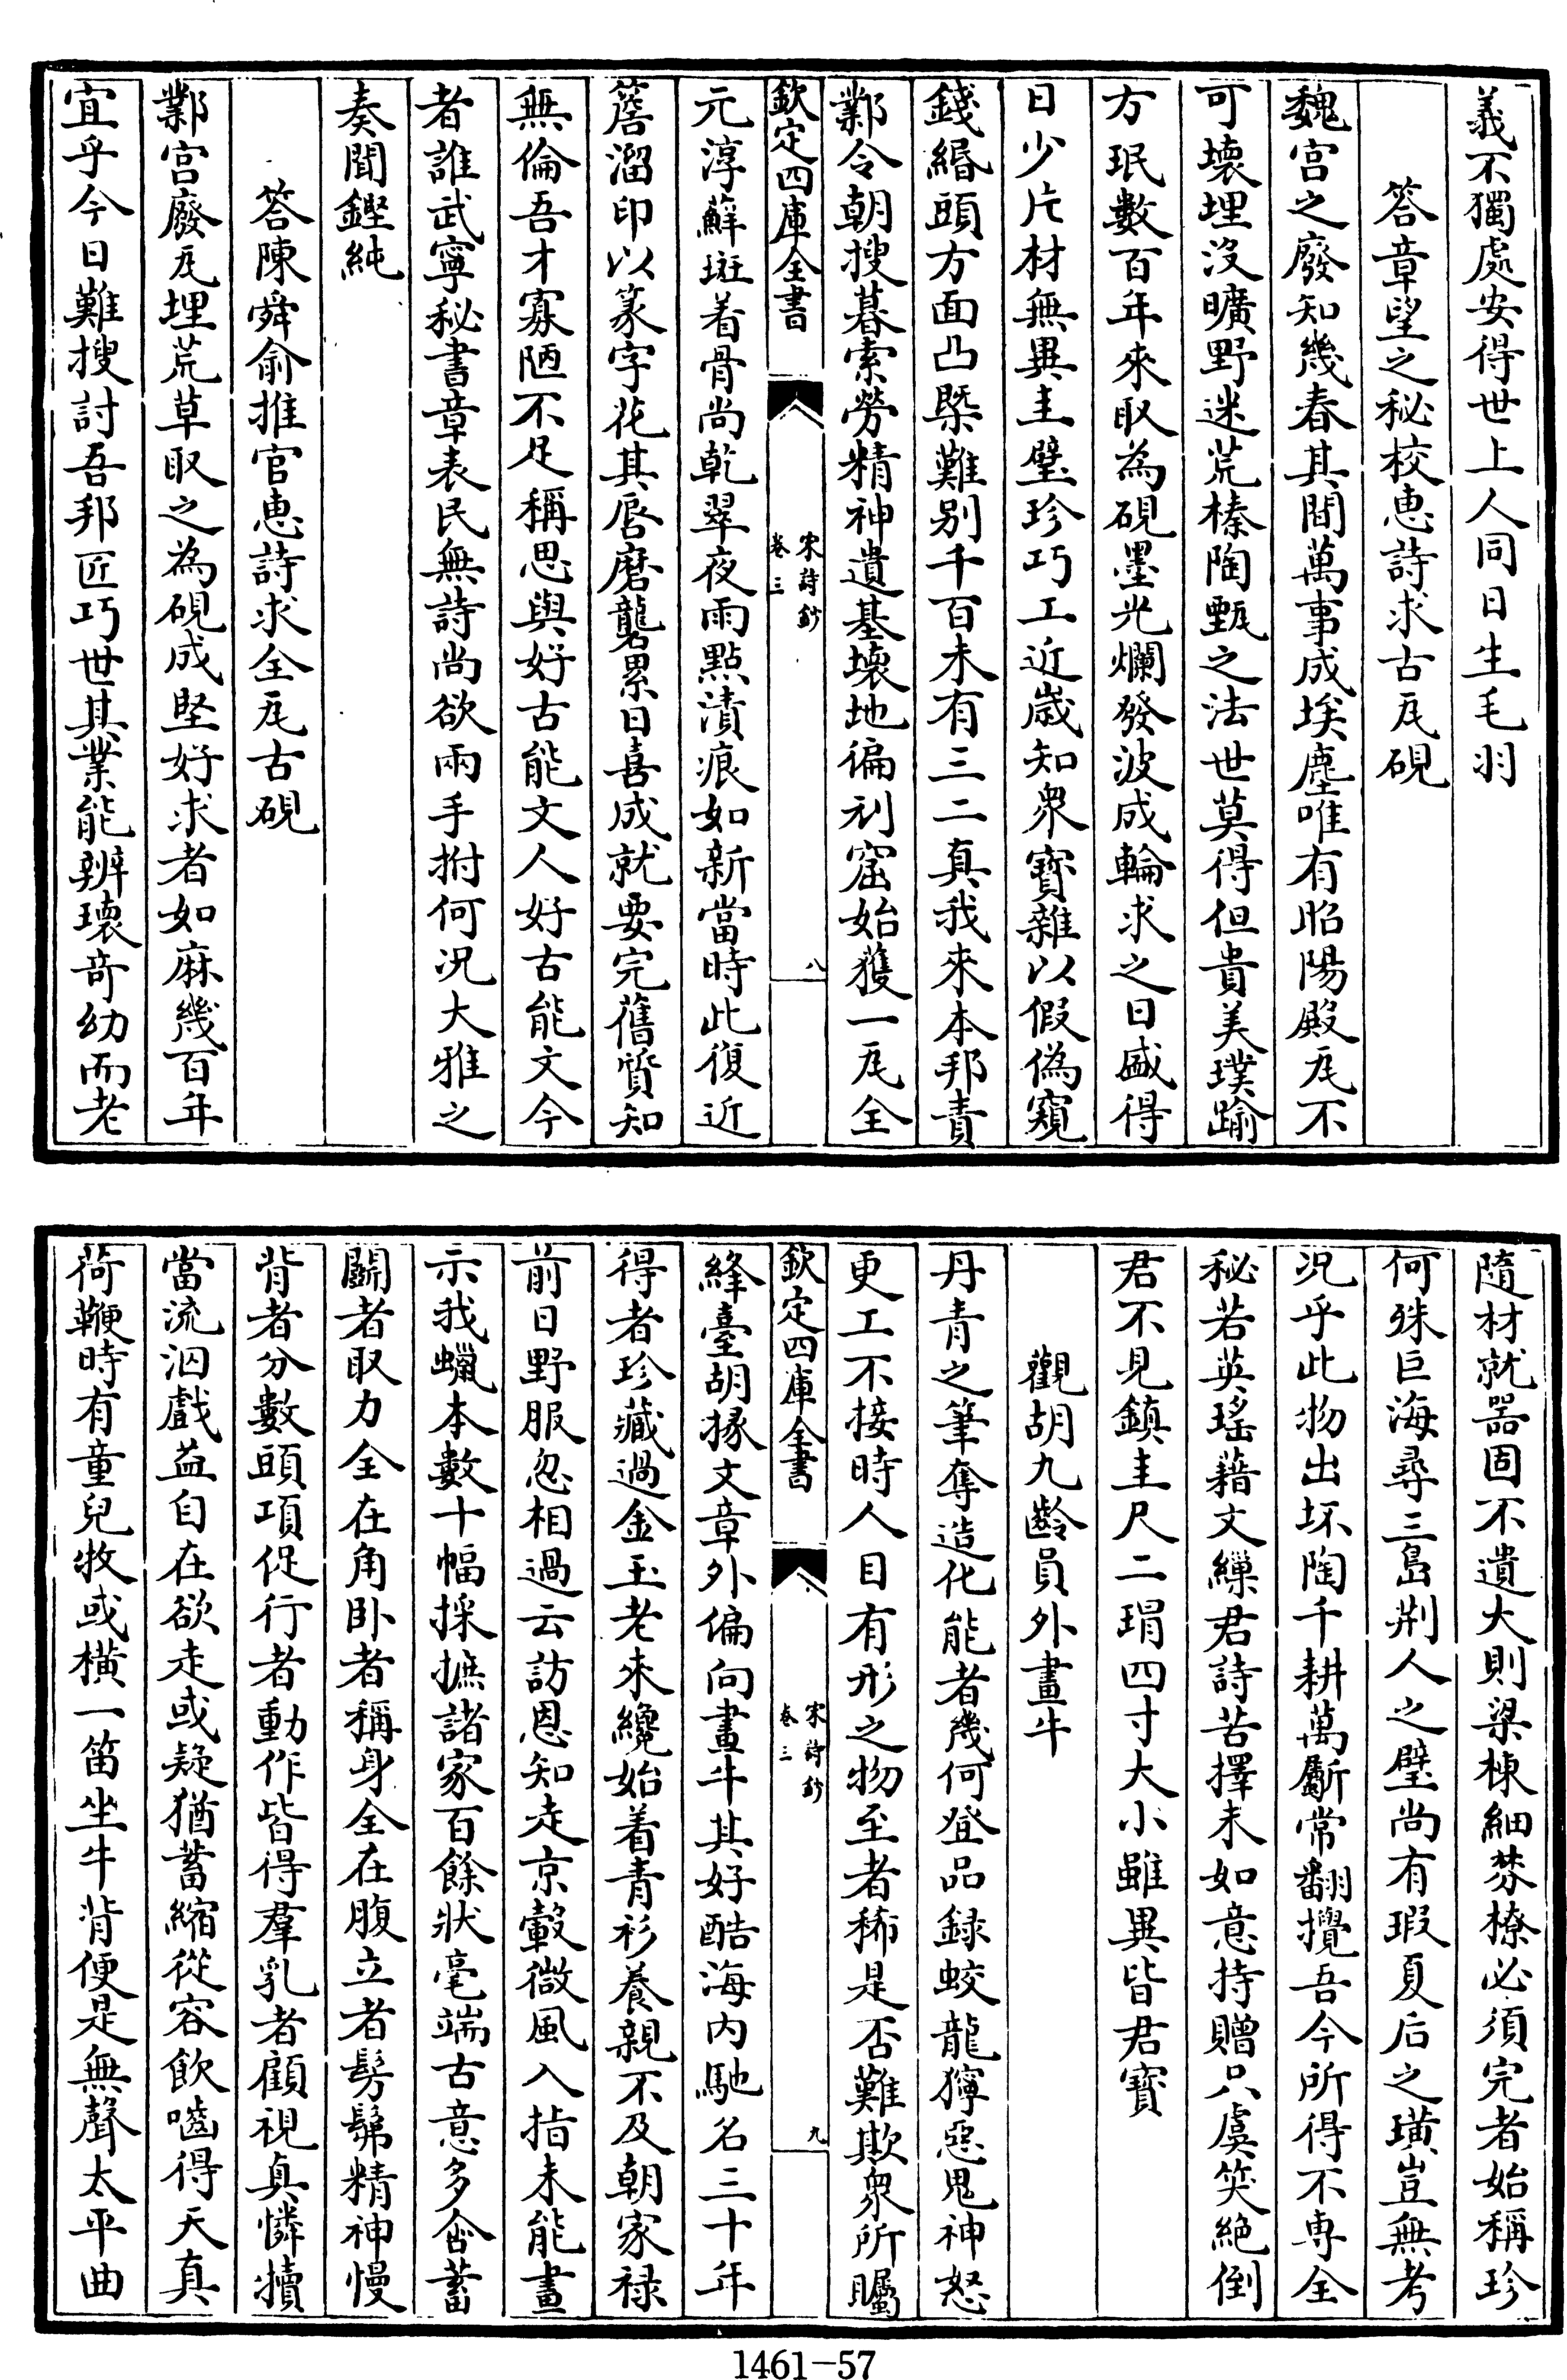 義不獨處安得世上人同日生毛羽
答章望之秘校恵詩求古瓦硯
魏宫之廢知幾春其間萬事成埃塵唯有昭陽殿瓦不
可壊埋沒曠野迷荒榛陶甄之法世莫得但貴美璞踰
方珉數百年來取為硯墨光爛發波成輪求之日盛得
日少片材無異圭璧珍巧工近歲知衆寳雜以假偽窺
錢緡頭方面凸槩難别千百未有三二真我來本邦責
鄴令朝搜暮索勞精神遺基壊地徧刓窟始獲一瓦全
欽定四庫全書
宋詩鈔
卷三
八
元淳蘚斑着骨尚乾翠夜雨點漬痕如新當時此復近
簷溜印以篆字花其唇磨礱累日喜成就要完舊質知
無倫吾才寡陋不足稱思與好古能文人好古能文今
者誰武寧秘書章表民無詩尚欲兩手拊何況大雅之
奏聞鏗純
答陳舜俞推官恵詩求全瓦古硯
鄴宫廢瓦埋荒草取之為硯成堅好求者如麻幾百年
宜乎今日難搜討吾邦匠巧世其業能辨瓌竒幼而老
隨材就器固不遺大則梁棟細棼橑必須完者始稱珍
何殊巨海尋三島荆人之璧尚有瑕夏后之璜豈無考
況乎此物出坏陶千耕萬斸常翻攪吾今所得不専全
秘若英瑤藉文繅君詩苦擇未如意持贈只虞笑絶倒
君不見鎮圭尺二瑁四寸大小雖異皆君寳
觀胡九齡員外畫牛
丹青之筆奪造化能者幾何登品録蛟龍獰惡鬼神怒
更工不接時人目有形之物至者稀是否難欺衆所矚
欽定四庫全書
宋詩鈔
卷三
九
絳臺胡掾文章外偏向畫牛其好酷海内馳名三十年
得者珍藏過金玉老來纔始着青衫養親不及朝家禄
前日野服忽相過云訪恩知走京轂微風入指未能畫
示我蠟本數十幅採摭諸家百餘狀毫端古意多含蓄
鬬者取力全在角卧者稱身全在腹立者髣髴精神慢
背者分數頭項促行者動作皆得羣乳者顧視真憐犢
當流泅戲益自在欲走或疑猶蓄縮從容飲嚙得天真
荷鞭時有童兒牧或横一笛坐牛背便是無聲太平曲
1461-57